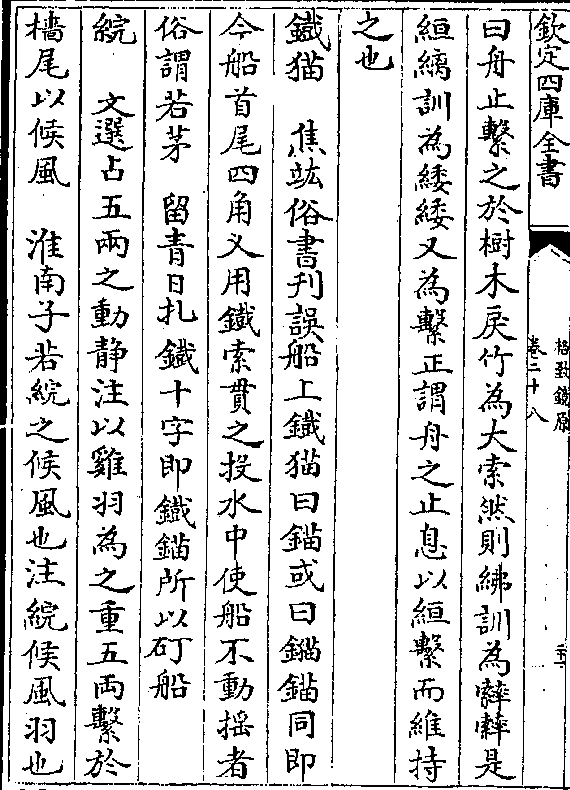 欽定四庫全書
格致鏡原
卷二十八
曰舟止繫之於樹木戾竹為大索然則紼訓為䋿䋿是
絙縭訓為緌緌又為繫正謂舟之止息以絙繫而維持
之也
鐵猫 焦竑俗書刊誤船上鐵猫曰錨或曰錨錨同即
今船首尾四角乂用鐵索貫之投水中使船不動揺者
俗謂若茅 留青日扎鐵十字即鐵錨所以矴船
綄 文選占五兩之動静注以雞羽為之重五両繫於
檣尾以候風 淮南子若綄之候風也注綄候風羽也